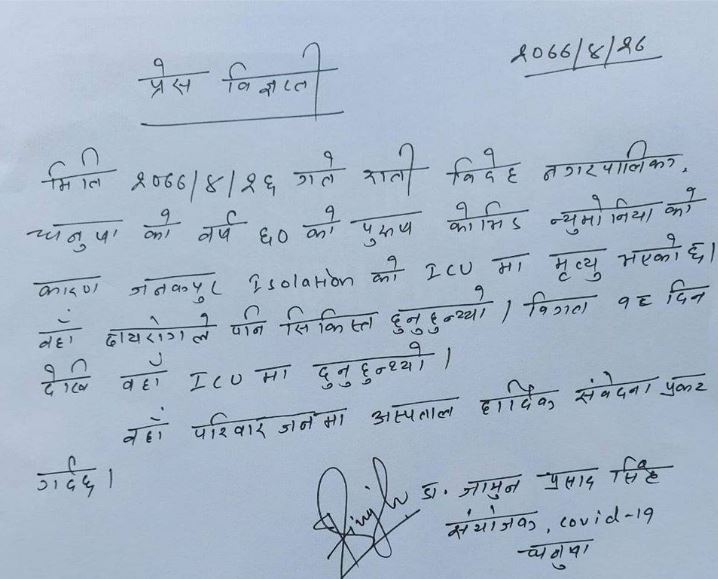 २०७७/४/२८
प्रेस विज्ञप्ती
मिति २०७७/४/२६ गते राती विदेह नगरपालिका,
धनुषा को वर्ष ६० को पुरुष कोभिड न्युमोनिया को
कारण जनकपुर Isolation को ICU मा मृत्यु भएको छ।
वहाँ छयरोगले पनि सिकिस्त हुनुहुन्थ्यो। विगत १८ दिन
देखि वहाँ ICU मा हुनुहुन्थ्यो।
वहाँ परिवार जनमा अस्पताल हार्दिक संवेदना प्रकट
गर्दछ।
Singh
डा. जामुन प्रसाद सिंह
संयोजक, covid-19
धनुषा